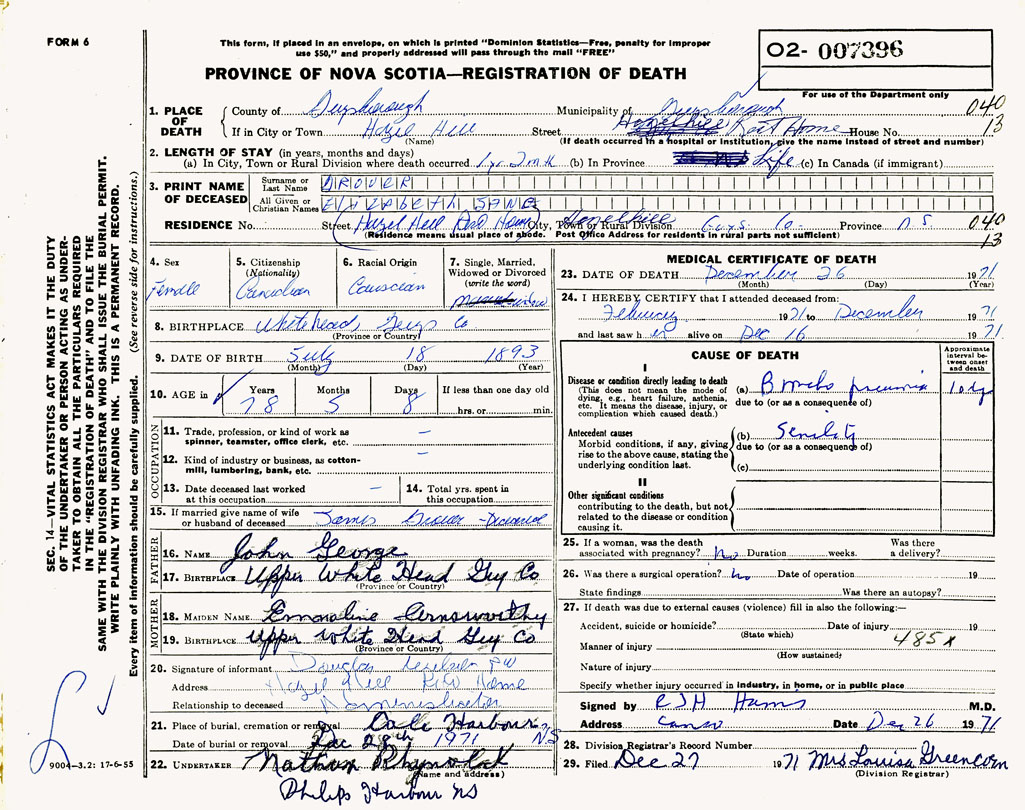 FORM 6
This form, if placed in an envelope, on which is printed "Dominion Statistics—Free, penalty for improper
use $50," and properly addressed will pass through the mail "FREE"
PROVINCE OF NOVA SCOTIA—REGISTRATION OF DEATH
O2- 007396
For use of the Department only
1. PLACE OF DEATH County of Guysborough Municipality of Guysborough 040
If in City or Town Hazel Hill Street Rest Home House No. 13
(Name) (If death occurred in a hospital or institution, give the name instead of street and number)
2. LENGTH OF STAY (in years, months and days)
(a) In City, Town or Rural Division where death occurred 1 yr 2 mth (b) In Province Life (c) In Canada (if immigrant)
3. PRINT NAME OF DECEASED Surname or Last Name DROVER
All Given or Christian Names ELIZABETH JANE
RESIDENCE No. Street Hazel Hill Rest Home City, Town or Rural Division Hazelhill Guys Co. Province N S 040
(Residence means usual place of abode. Post Office Address for residents in rural parts not sufficient) 13
4. Sex Female
5. Citizenship (Nationality) Canadian
6. Racial Origin
7. Single, Married, Widowed or Divorced (write the word) widow
8. BIRTHPLACE Whitehead, Guys Co
(Province or Country)
9. DATE OF BIRTH July 18 1893
(Month) (Day) (Year)
10. AGE in Years 78 Months 5 Days 8 If less than one day old
hrs. or min.
OCCUPATION
11. Trade, profession, or kind of work as spinner, teamster, office clerk, etc. —
12. Kind of industry or business, as cotton-mill, lumbering, bank, etc. —
13. Date deceased last worked at this occupation —
14. Total yrs. spent in this occupation
15. If married give name of wife or husband of deceased James Drover - Deceased
FATHER
16. NAME John George
17. BIRTHPLACE Upper White Head Guy Co
(Province or Country)
MOTHER
18. MAIDEN NAME
19. BIRTHPLACE Upper White Head Guy Co
(Province or Country)
20. Signature of informant Douglas
Address Hazel Hill Home
Relationship to deceased Administrator
21. Place of burial, cremation or removal Cole Harbour NS
Date of burial or removal Dec 28th 1971
22. UNDERTAKER Nathan
(Name and address)
Philips Harbour NS
MEDICAL CERTIFICATE OF DEATH
23. DATE OF DEATH December 26 1971
(Month) (Day) (Year)
24. I HEREBY CERTIFY that I attended deceased from:
February 1971 to December 1971
and last saw h er alive on Dec 16 1971
CAUSE OF DEATH
Approximate interval between onset and death
I
Disease or condition directly leading to death
(This does not mean the mode of dying, e.g., heart failure, asthenia, etc. It means the disease, injury, or complication which caused death.)
(a) Broncho pneumonia
due to (or as a consequence of)
Antecedent causes
Morbid conditions, if any, giving rise to the above cause, stating the underlying condition last.
(b) Senility
due to (or as a consequence of)
(c)
II
Other significant conditions
contributing to the death, but not related to the disease or condition causing it.
25. If a woman, was the death associated with pregnancy? No Duration weeks. Was there a delivery?
26. Was there a surgical operation? No Date of operation 19
State findings Was there an autopsy?
27. If death was due to external causes (violence) fill in also the following:—
Accident, suicide or homicide? Date of injury 19
(State which)
Manner of injury 485x
(How sustained)
Nature of injury
Specify whether injury occurred in industry, in home, or in public place
Signed by M.D.
Address Canso Date Dec 26 1971
28. Division Registrar's Record Number
29. Filed Dec 27 1971 Mrs Louisa Greencorn
(Division Registrar)
SEC. 14—VITAL STATISTICS ACT MAKES IT THE DUTY
OF THE UNDERTAKER OR PERSON ACTING AS UNDER-
TAKER TO OBTAIN ALL THE PARTICULARS REQUIRED
IN THE "REGISTRATION OF DEATH" AND TO FILE THE
SAME WITH THE DIVISION REGISTRAR WHO SHALL ISSUE THE BURIAL PERMIT.
WRITE PLAINLY WITH UNFADING INK. THIS IS A PERMANENT RECORD.
Every item of information should be carefully supplied. (See reverse side for instructions.)
9004—3.2: 17-6-55